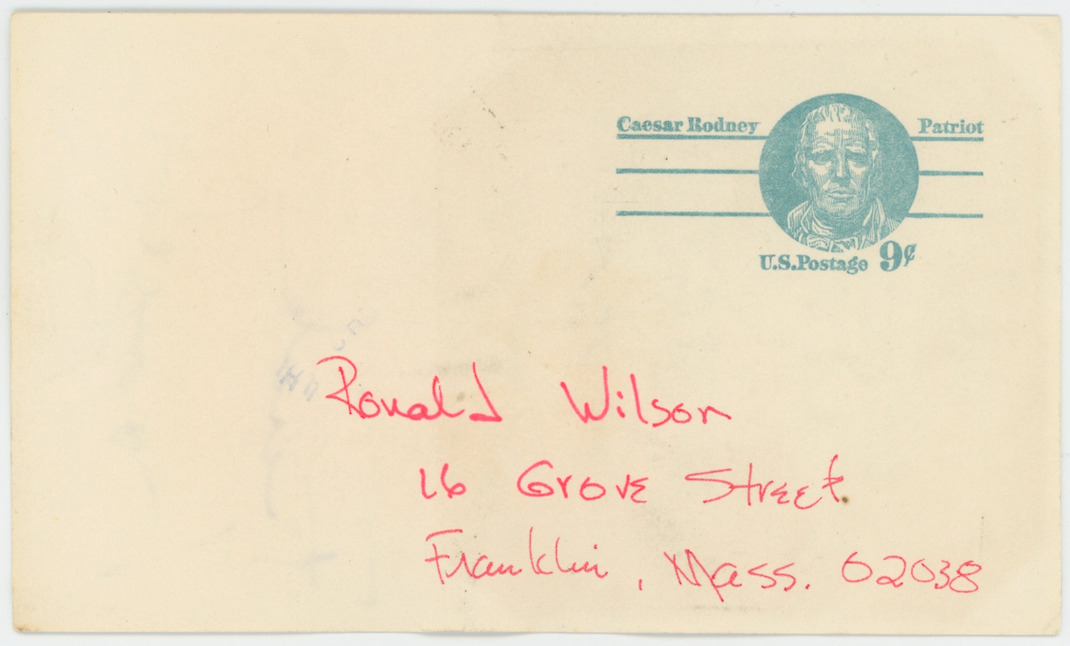 Caesar Rodney Patriot
U.S.Postage 9¢
Ronald Wilson
16 Grove Street
Franklin, Mass. 02038